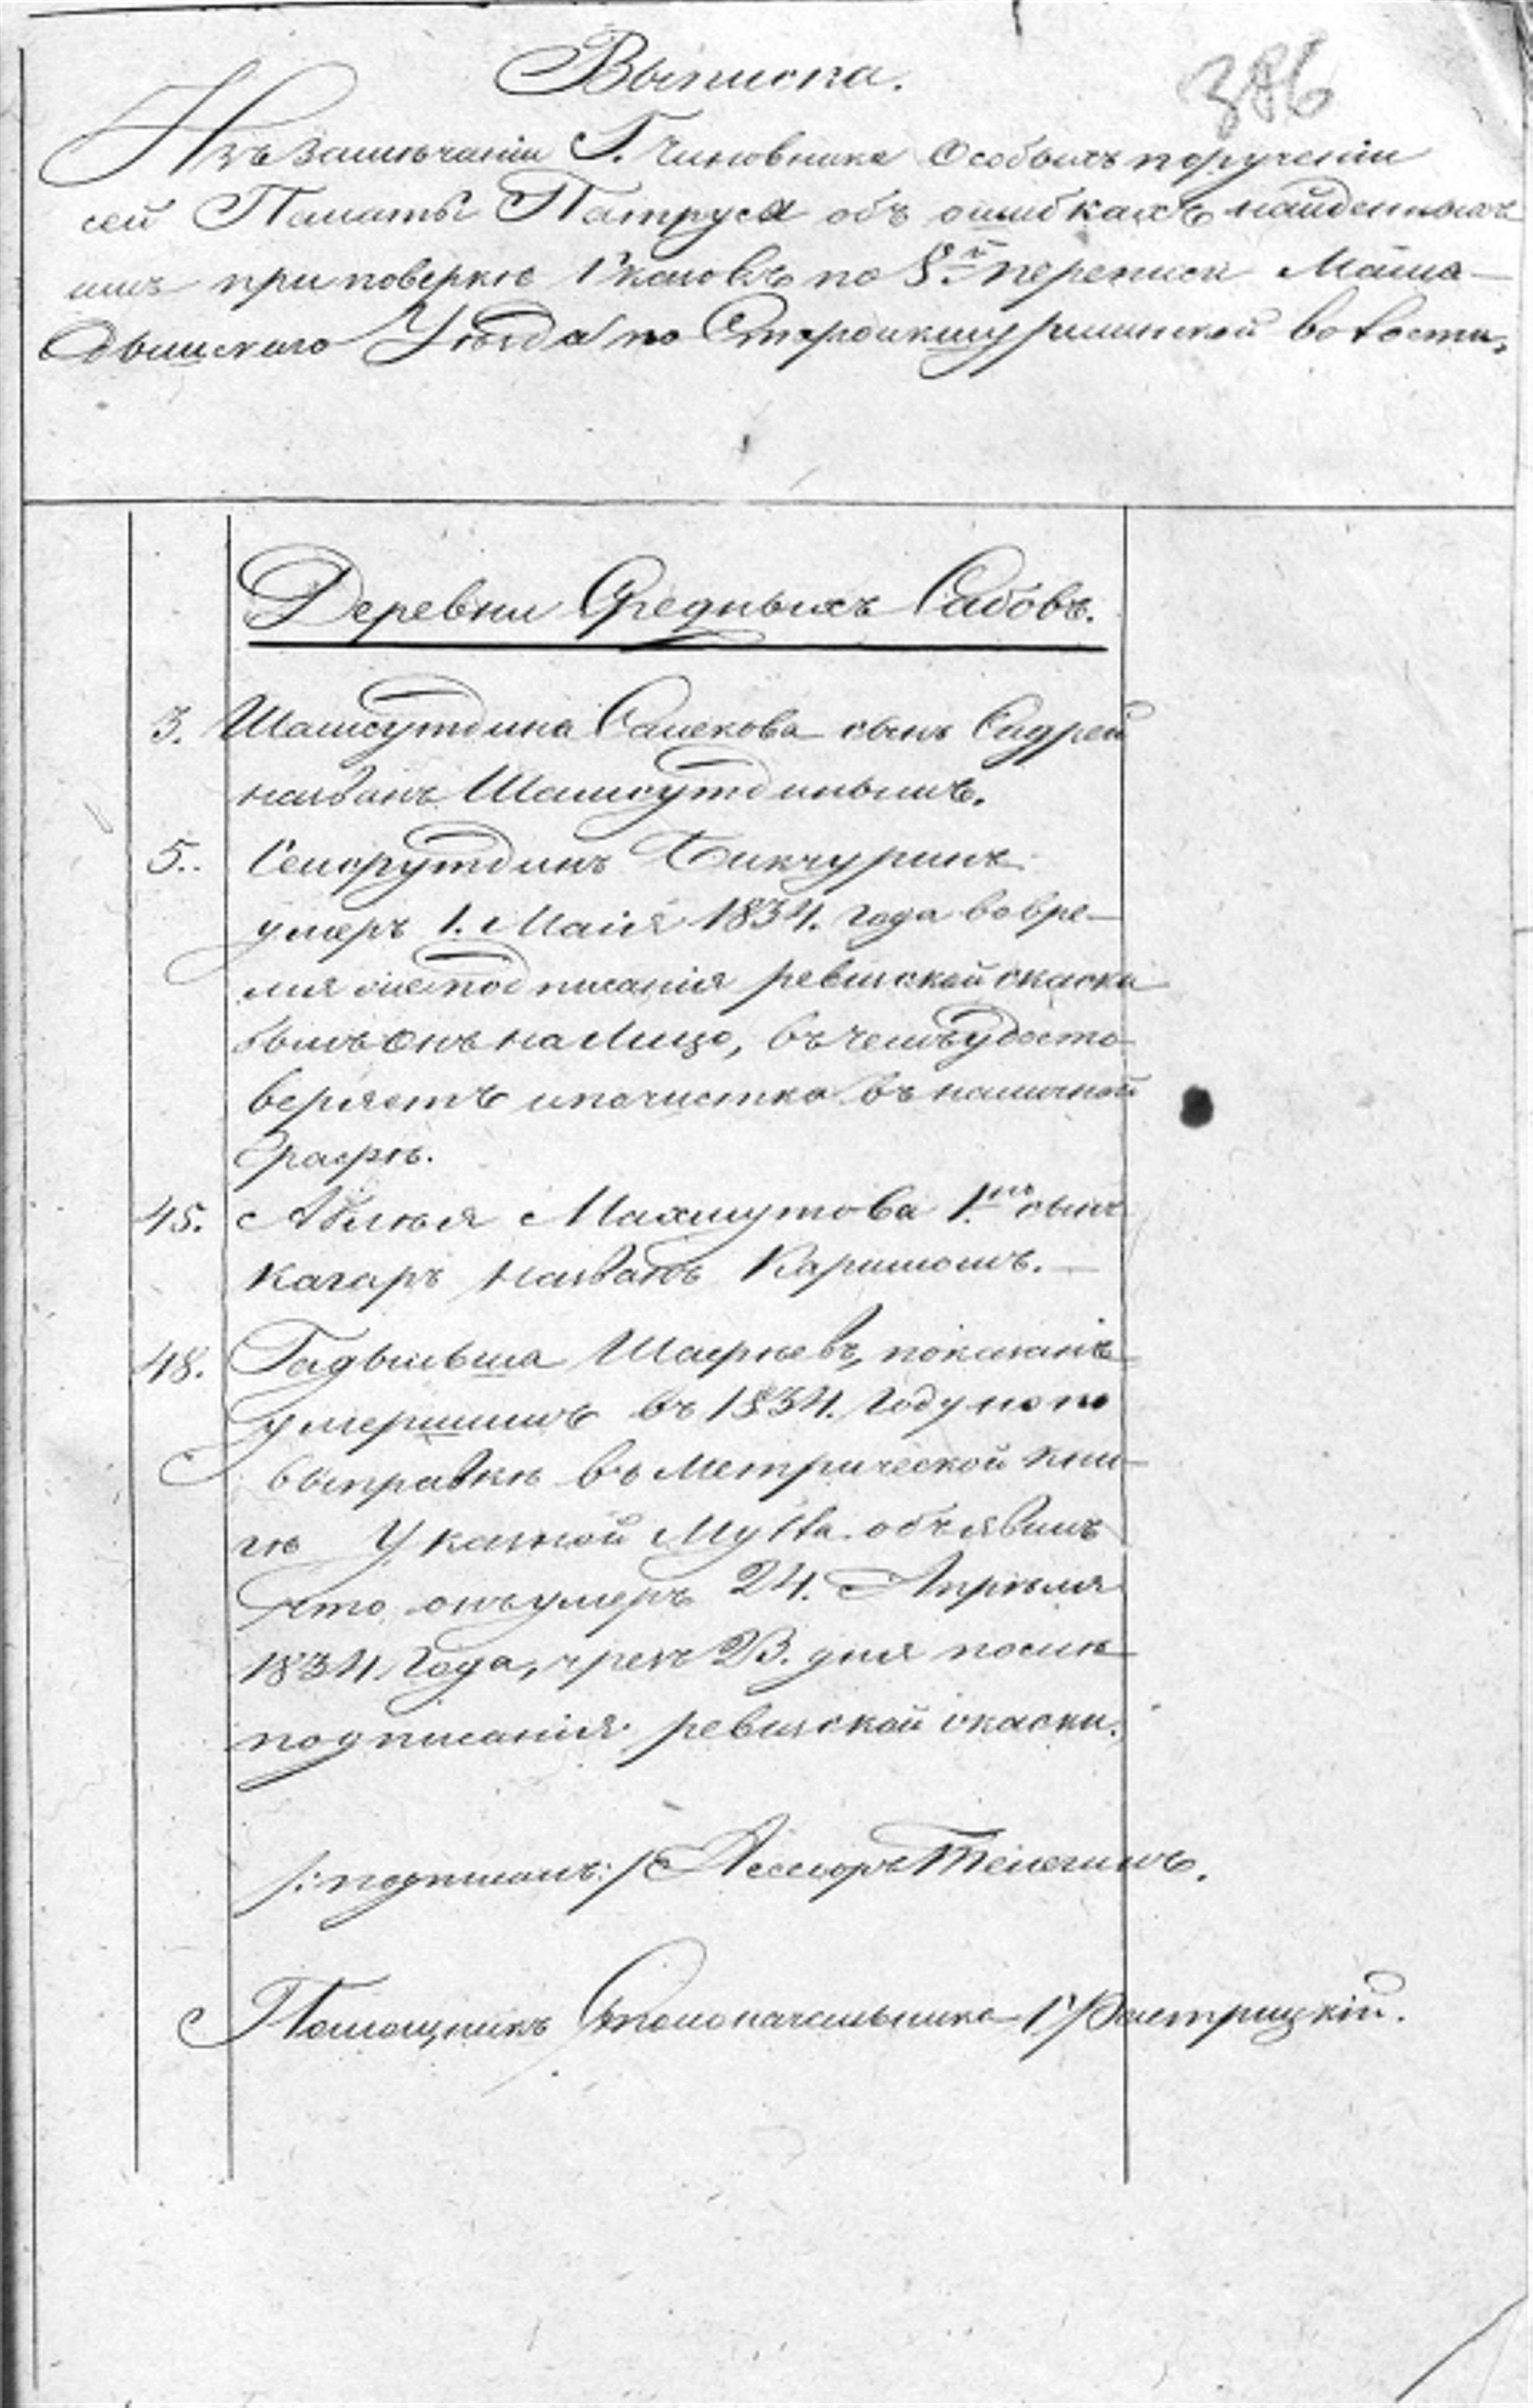 Выписка.
386
Изъ замѣчанiи Г. Чиновника Особыхъ порученiи
сей Палаты Патруса объ ошибкахъ найденныхъ
имъ при поверкѣ Скасокъ по 8й переписи Мама-
дышскаго Уѣзда по Староикшурминской волости,
Деревни Среднихъ Сабовъ.
3. Шамсутдина Салекова сынъ Садрей
названъ Шамсутдиновымъ.
5. Сейфутдинъ Бикчуринъ
умеръ 1. Маiя 1834. года вовре-
мя же подписанiя ревизской скаски
былъ онъ на лицо, въ чемъ удосто
веряетъ и почистка въ наличной
Графѣ.
45. Абдюлъ Махмутова 1.й сынъ
Качаръ названъ Каримомъ.
48. Гадыльша Шафѣевъ, показанъ
умершимъ въ 1834. году но по
выправкѣ въ метрической кни-
гѣ Указной Мулла объявилъ
что онъ умеръ 24. Апрѣля
1834. года, чрезъ 23. дня послѣ
подписанiя ревизской скаски.
/:подписалъ:/ Асессоръ Телегинъ.
Помощникъ Столоначальника